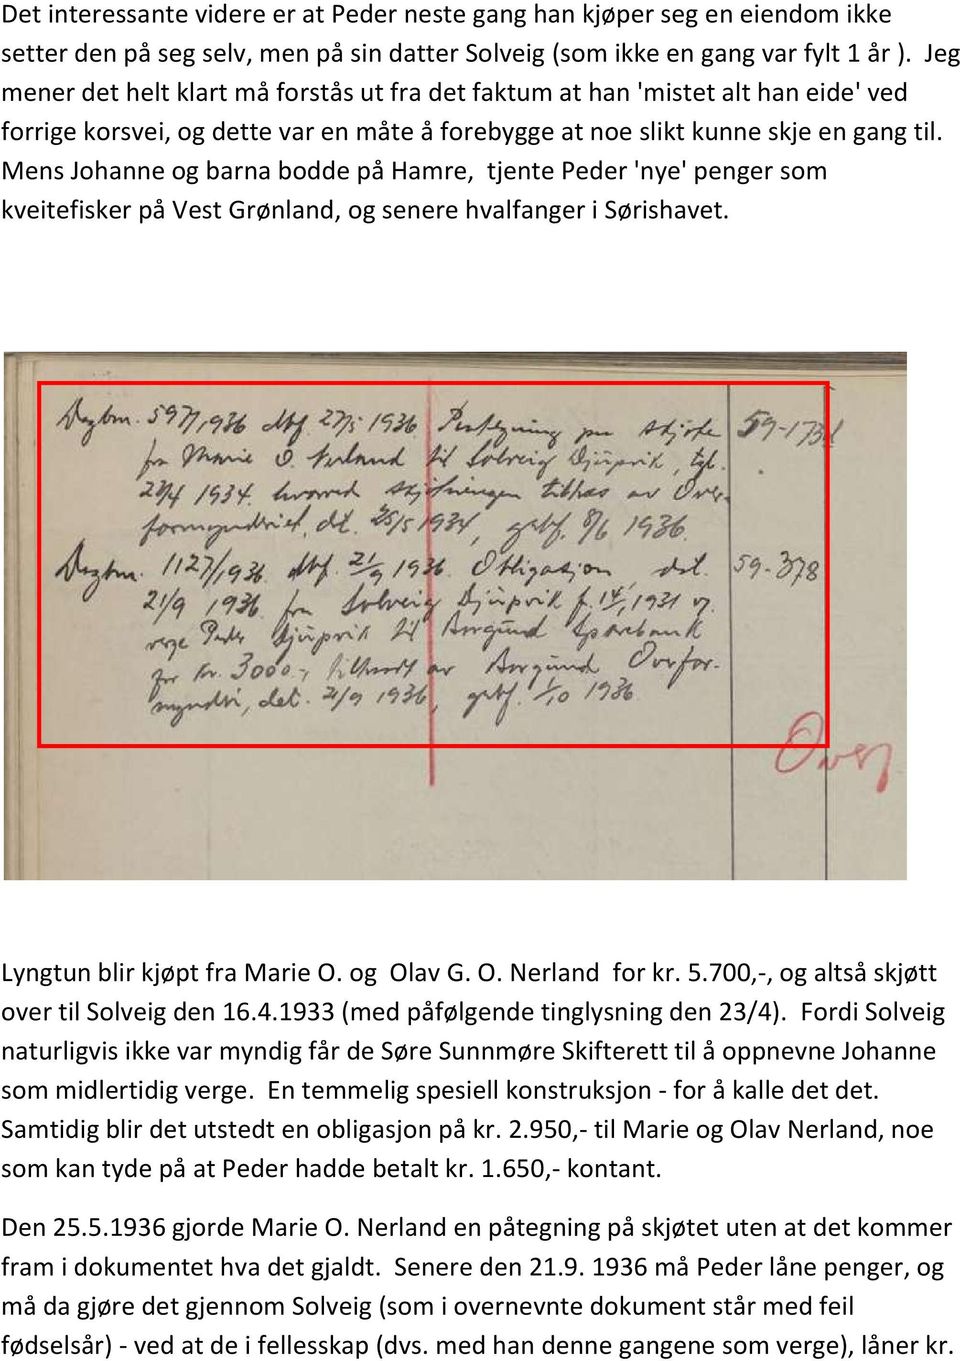 Det interessante videre er at Peder neste gang han kjøper seg en eiendom ikke
setter den på seg selv, men på sin datter Solveig (som ikke en gang var fylt 1 år ).  Jeg
mener det helt klart må forstås ut fra det faktum at han 'mistet alt han eide' ved
forrige korsvei, og dette var en måte å forebygge at noe slikt kunne skje en gang til.
Mens Johanne og barna bodde på Hamre,  tjente Peder 'nye' penger som
kveitefisker på Vest Grønland, og senere hvalfanger i Sørishavet.
Dagbnr. 597/1936 dbf. 27/5 1936. Påtegning på skjøte 59-173
fra Marie O. Nerland til Solveig Djupvik, tgl.
23/4 1934. hvorved skjøtningen tiltræs av Over-
formynderiet, dt. 25/5 1934, 8/6 1936.
Dagbnr. 1127/1936. dbf. 21/9 1936. Obligasjon, dat. 59-378
21/9 1936 fra Solveig Djupvik f. 1931 og
verge Peder Djupvik til Borgund Sparebank
for kr. 3000,- tiltraadt av Borgund Overfor-
mynderi, dat. 21/9 1936, 1/10 1936.
Over
Lyngtun blir kjøpt fra Marie O. og  Olav G. O. Nerland  for kr. 5.700,-, og altså skjøtt
over til Solveig den 16.4.1933 (med påfølgende tinglysning den 23/4).  Fordi Solveig
naturligvis ikke var myndig får de Søre Sunnmøre Skifterett til å oppnevne Johanne
som midlertidig verge.  En temmelig spesiell konstruksjon - for å kalle det det.
Samtidig blir det utstedt en obligasjon på kr. 2.950,- til Marie og Olav Nerland, noe
som kan tyde på at Peder hadde betalt kr. 1.650,- kontant.
Den 25.5.1936 gjorde Marie O. Nerland en påtegning på skjøtet uten at det kommer
fram i dokumentet hva det gjaldt.  Senere den 21.9. 1936 må Peder låne penger, og
må da gjøre det gjennom Solveig (som i overnevnte dokument står med feil
fødselsår) - ved at de i fellesskap (dvs. med han denne gangene som verge), låner kr.